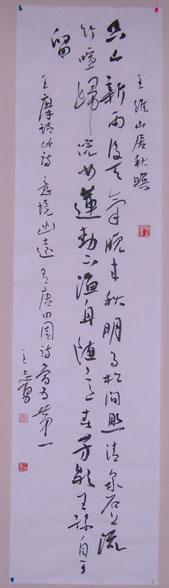 王維山居秋暝
空山新雨後天氣晚來秋明月松間照清泉石上流
竹喧歸浣女蓮動下漁舟隨意春芳歇王孫自可
留
王摩詰此詩意境幽遠唐田園詩第一
王